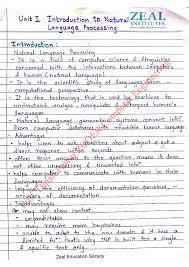 Unit I. Introduction to Natural
Language Processing
ZEAL
INSTITUTES
Introduction :
Natural Language Processing
- It is a field of computer science & linguistics
concerned with the interactions between computer
& human (natural language).
- It is the scientific study of languages from
computational perspective.
- It is the technology that is used by machines to
understand, analyse, manipulate & interpret human's
languages.
- Natural language generation systems convert info^n
from computer databases into readable human language
Advantages
- helps users to ask questions about subject & get a
direct response within seconds
- offers exact answers to the question means it does
not allow unnecessary & unwanted info^n.
- helps computer to communicate with humans in their
languages
- improve efficiency of documentation process,
accuracy of documentation
Disadvantages
- may not show context.
- unpredictable
- may require more keystrokes
- unable to adapt to the new domain & it has a
limited fu^n that's why NLP is built for a single
& specific task only.
Zeal Education Society